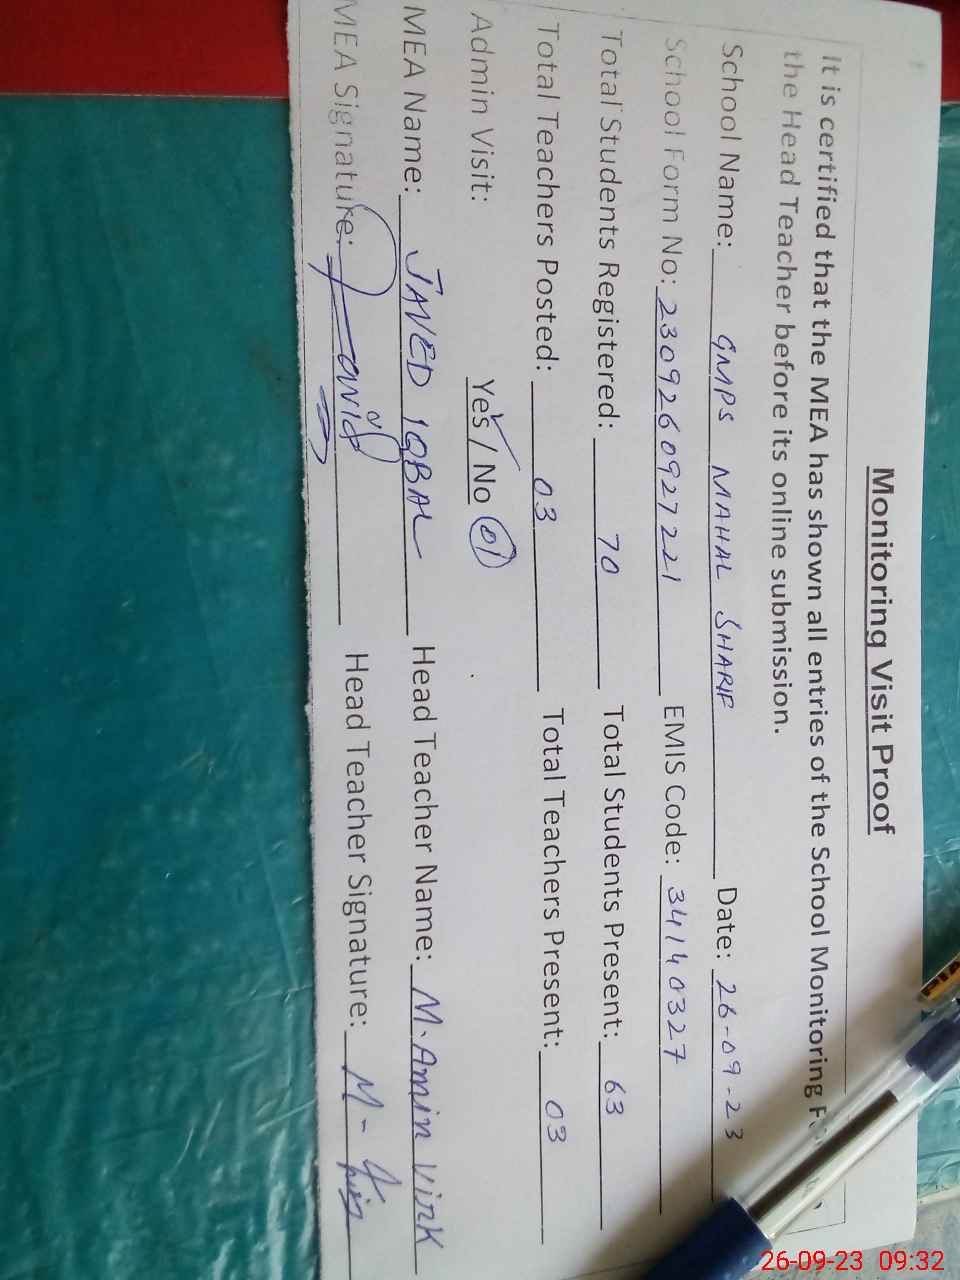 Monitoring Visit Proof
It is certified that the MEA has shown all entries of the School Monitoring
the Head Teacher before its online submission.
School Name: GMPS MAHAL SHARIF Date: 26-09-23
School Form No: 2309260927221 EMIS Code: 34140327
Total Students Registered: 70 Total Students Present: 63
Total Teachers Posted: 03 Total Teachers Present: 03
Admin Visit: Yes / No 01
MEA Name: JAVED IQBAL Head Teacher Name: M. Amin Virk
MEA Signature: Javid Head Teacher Signature: M-
26-09-23 09:32